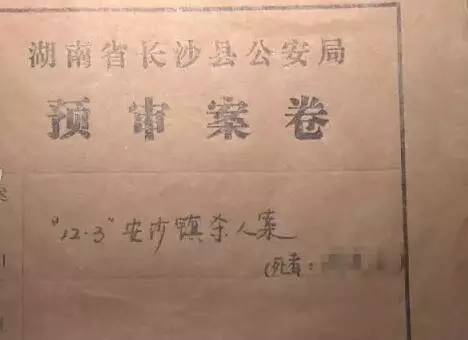 湖南省长沙县公安局
预审案卷
"12.3"安沙镇杀人案
(死者: